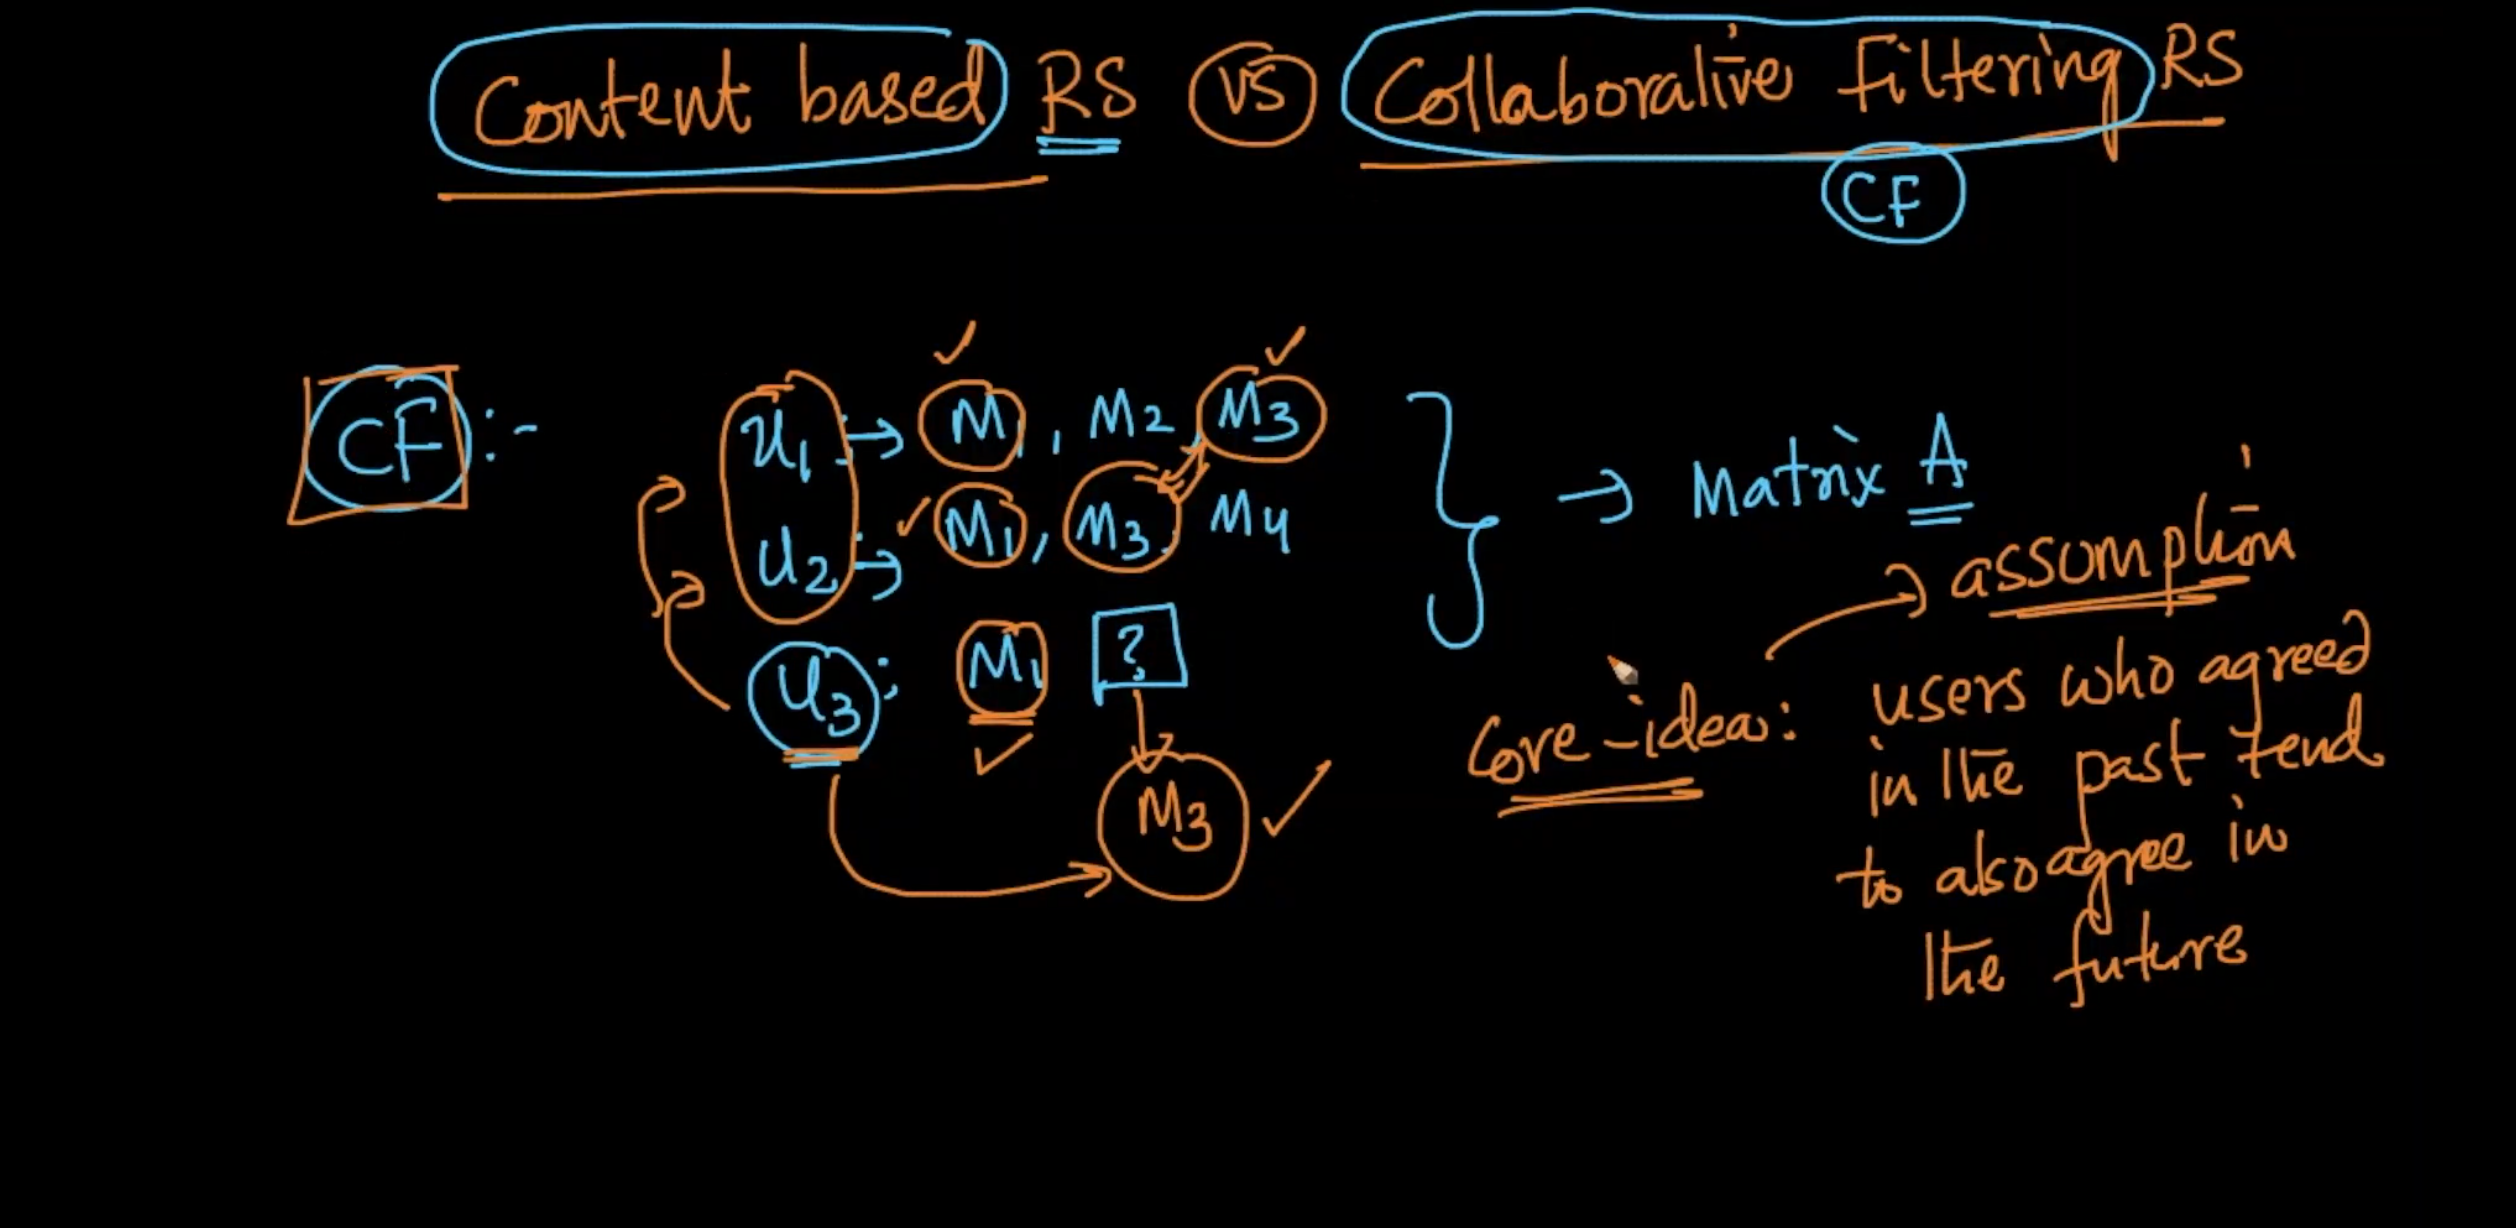 Content based RS VS Collaborative Filtering RS
CF
CF :- u1 → M1, M2, M3
u2 → M1, M3, M4
→ Matrix A
u3: M1 ?
M3
→ assumption
core-idea: users who agreed
in the past tend
to also agree in
the future